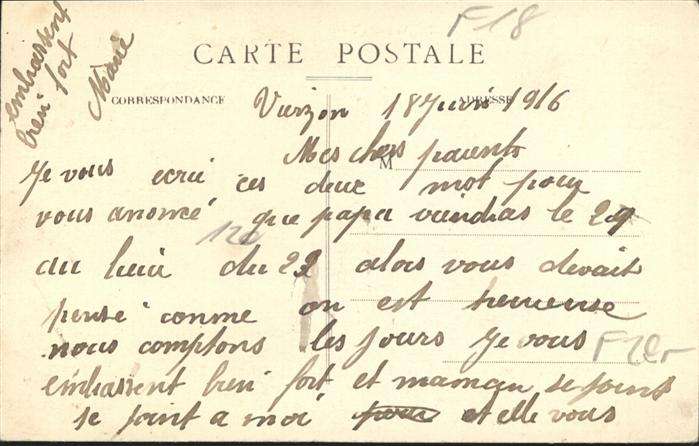 F18
CARTE POSTALE
CORRESPONDANCE
ADRESSE
Vierzon 18 Juin 1916
M
Mes chers parents
Je vous écri ces deux mot pour
vous anoncé que papa viendras le 29
au lieu du 22 alors vous devait
pensé comme on est heureuse
nous comptons les jours Je vous
embrassent bien fort et maman se joint
se joint a moi et elle vous
embrassent
bien fort
Marie
120